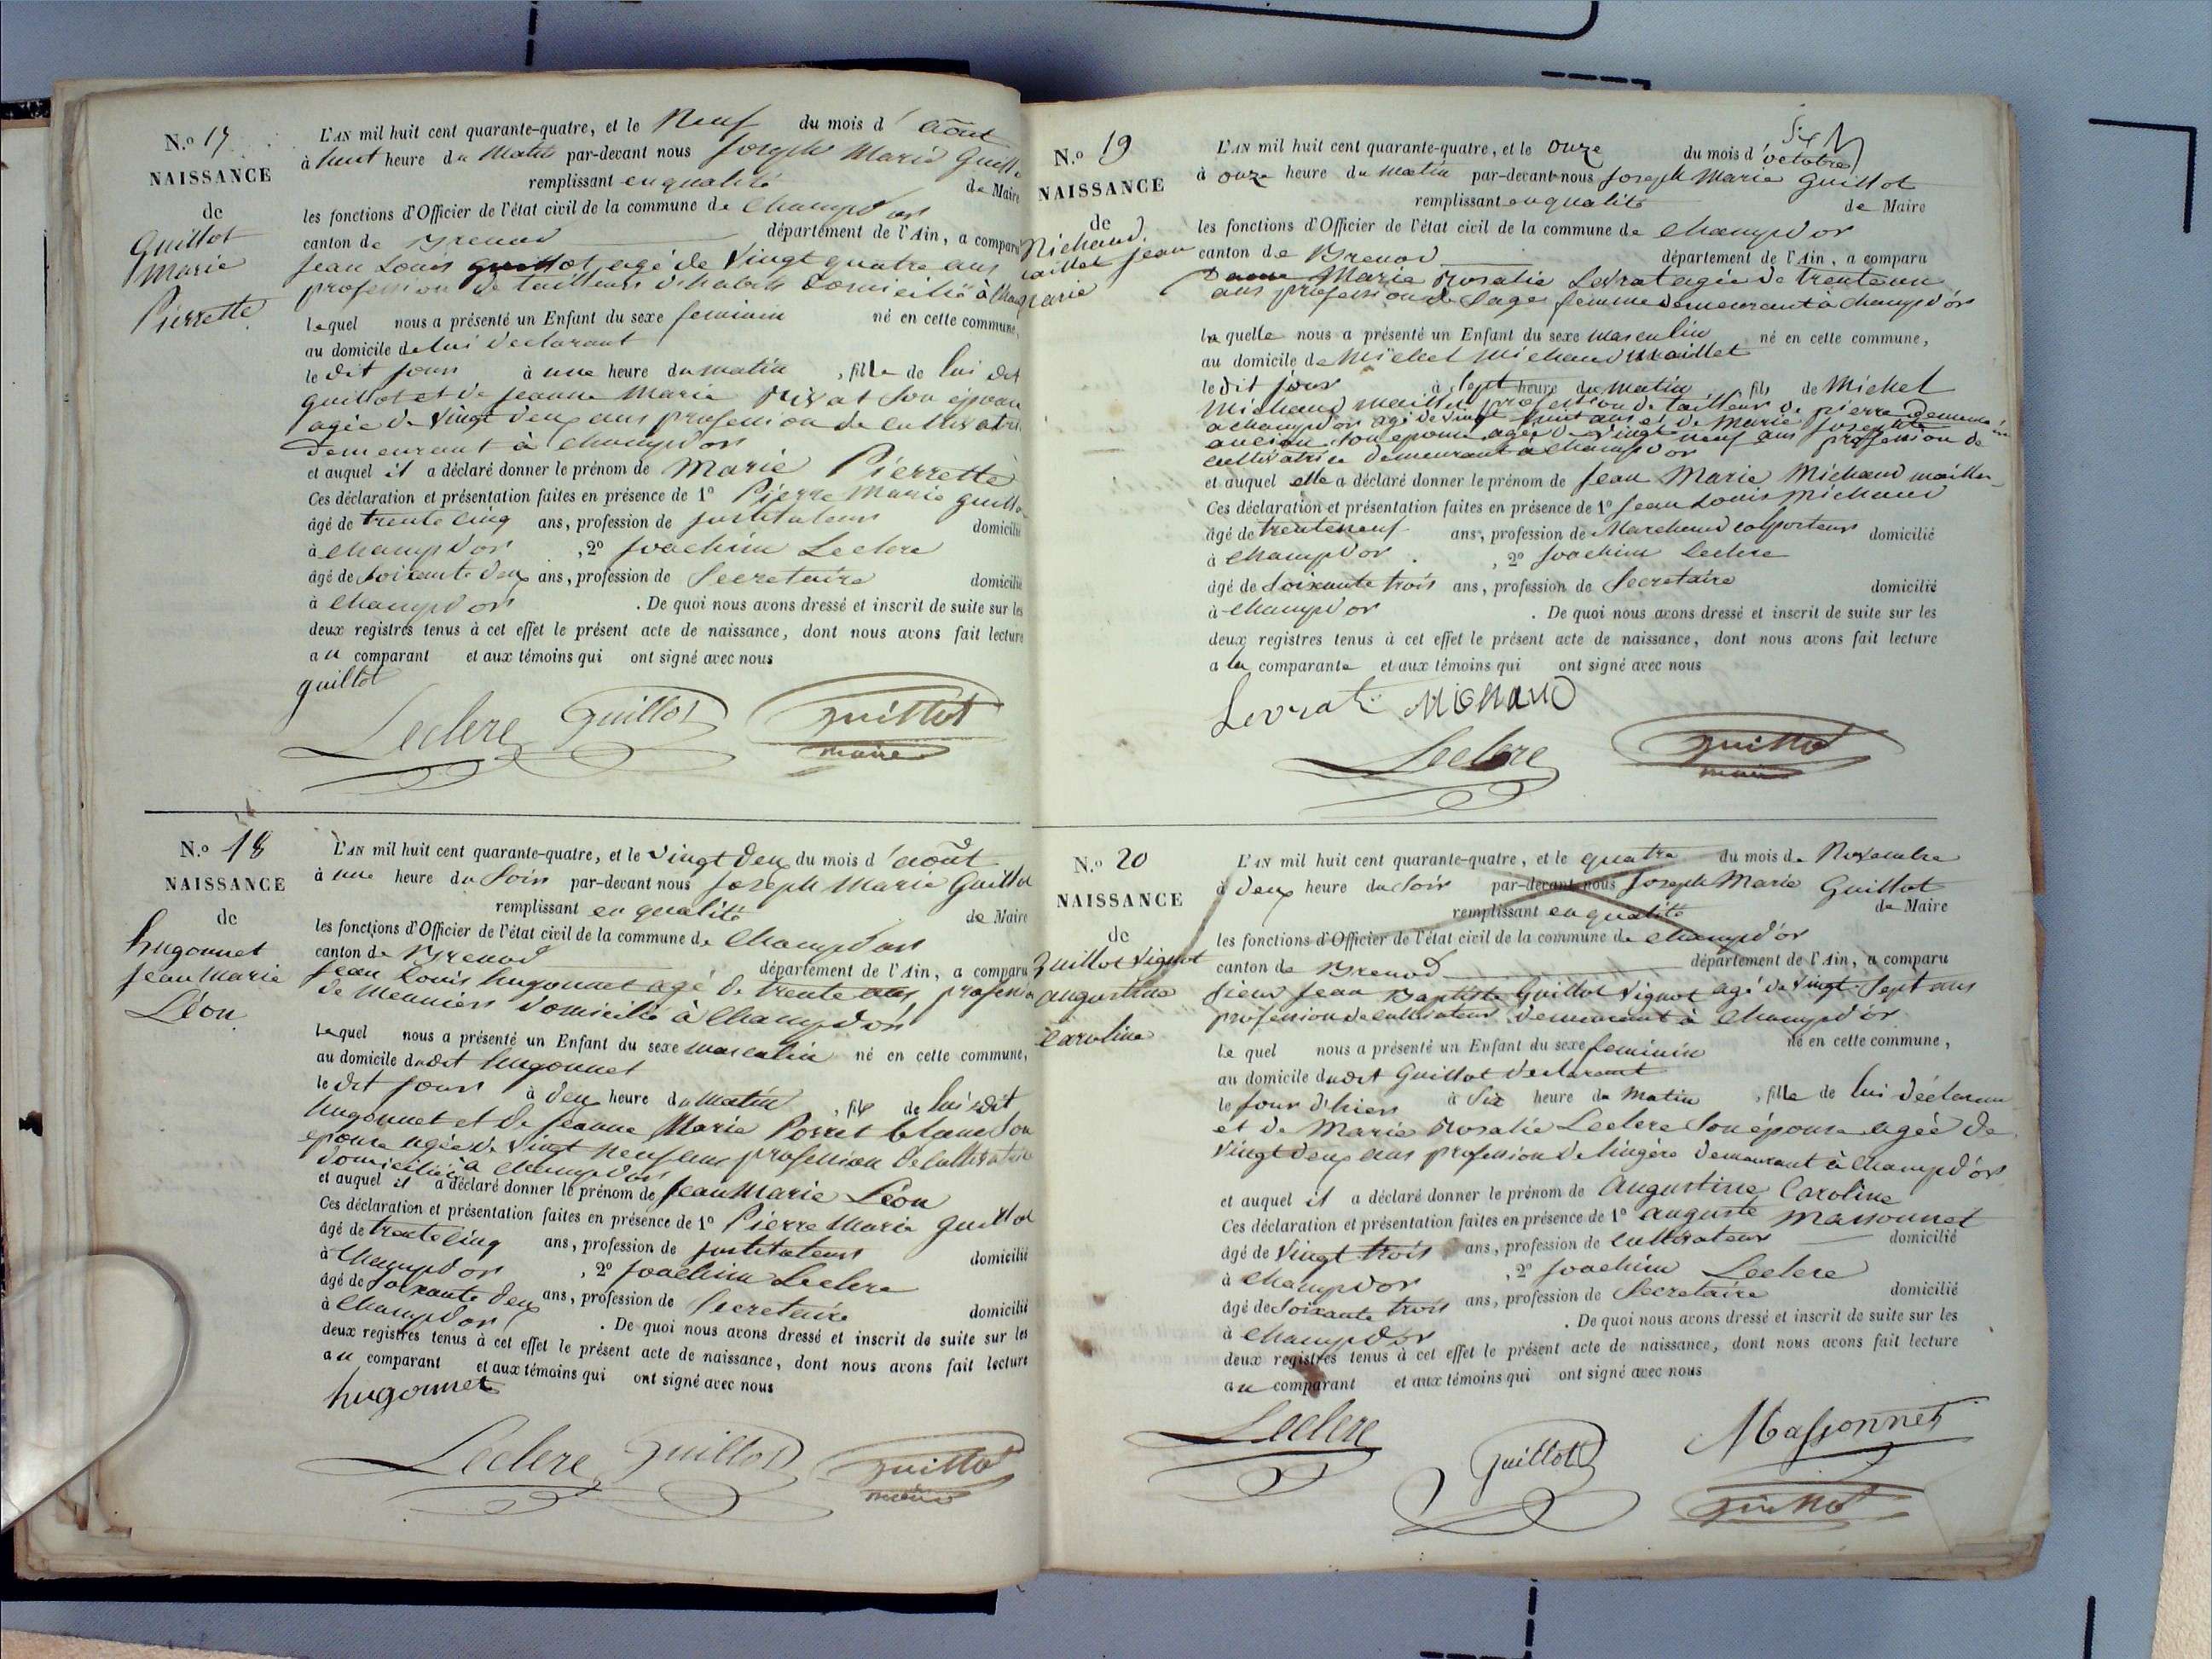 N.º 17
NAISSANCE
de
Guillot
Marie
Pierrette
L'AN mil huit cent quarante-quatre, et le Neuf du mois d'août
à huit heure du Matin par-devant nous Joseph Marie Guillo
remplissant en qualité de Maire
les fonctions d'Officier de l'état civil de la commune de Champdor
canton de Brenod département de l'Ain, a comparu
Jean Louis Guillot agé de Vingt quatre ans
profession de tailleur d'habits domicilié à Cham
lequel nous a présenté un Enfant du sexe feminin né en cette commune,
au domicile de lui declarant
le dit jour à une heure du matin, fille de lui dit
Guillot et de Jeanne Marie son épouse
agée de Vingt deux ans profession de cultivatri
demeurant à Champdor
et auquel il a déclaré donner le prénom de Marie Pierrette
Ces déclaration et présentation faites en présence de 1º Pierre Marie Guillo
âgé de trente cinq ans, profession de Justituteur domicilié
à Champdor, 2º Joachim Leclere
âgé de Soixante deux ans, profession de Secretaire domicilié
à Champdor. De quoi nous avons dressé et inscrit de suite sur les
deux registres tenus à cet effet le présent acte de naissance, dont nous avons fait lecture
au comparant et aux témoins qui ont signé avec nous
guillot
Leclere Guillot Guillot
maire
N.º 18
NAISSANCE
de
hugonnet
Jean Marie
Léon
L'AN mil huit cent quarante-quatre, et le Vingt deux du mois d'août
à une heure du Soir par-devant nous Joseph Marie Guillot
remplissant en qualité de Maire
les fonctions d'Officier de l'état civil de la commune de Champdor
canton de Brenod département de l'Ain, a comparu
Jean Louis hugonnet agé de trente ans profession
de Meunier domicilié à Champdor
lequel nous a présenté un Enfant du sexe masculin né en cette commune,
au domicile dudit hugonnet
le dit jour à deux heure du Matin, fils de lui dit
hugonnet et de Jeanne Marie Porret blanc son
epouse agée de Vingt neuf ans profession de cultivatrice
domiciliée à Champdor
et auquel il a déclaré donner le prénom de Jean Marie Léon
Ces déclaration et présentation faites en présence de 1º Pierre Marie Guillot
âgé de trente cinq ans, profession de Justituteur domicilié
à Champdor, 2º Joachim Leclere
âgé de Soixante deux ans, profession de Secretaire domicilié
à Champdor. De quoi nous avons dressé et inscrit de suite sur les
deux registres tenus à cet effet le présent acte de naissance, dont nous avons fait lecture
au comparant et aux témoins qui ont signé avec nous
hugonnet
Leclere Guillot Guillot
maire
N.º 19
NAISSANCE
de
Michaud
maillet Jean
Marie
L'AN mil huit cent quarante-quatre, et le Onze du mois d'octobre
à onze heure du matin par-devant nous Joseph Marie Guillot
remplissant en qualité de Maire
les fonctions d'Officier de l'état civil de la commune de Champdor
canton de Brenod département de l'Ain, a comparu
Dame Marie Rosalie Levrat agée de trente un
ans profession de Sage femme demeurant à Champdor
laquelle nous a présenté un Enfant du sexe masculin né en cette commune,
au domicile de Michel Michaud maillet
le dit jour à Sept heure du matin, fils de Michel
Michaud maillet profession de tailleur de pierre demeurant
à Champdor agé de vingt huit ans et de Marie Josephte
ancian son épouse agée de Vingt neuf ans profession de
cultivatrice demeurant à Champdor
et auquel elle a déclaré donner le prénom de Jean Marie Michaud maillet
Ces déclaration et présentation faites en présence de 1º Jean Louis Michaud
âgé de trente neuf ans, profession de Marchand colporteur domicilié
à Champdor, 2º Joachim Leclere
âgé de Soixante trois ans, profession de Secretaire domicilié
à Champdor. De quoi nous avons dressé et inscrit de suite sur les
deux registres tenus à cet effet le présent acte de naissance, dont nous avons fait lecture
a la comparante et aux témoins qui ont signé avec nous
Levrat MICHAUD
Leclere Guillot
maire
N.º 20
NAISSANCE
de
Guillot Vignot
augustine
Caroline
L'AN mil huit cent quarante-quatre, et le quatre du mois de Novembre
à deux heure du Soir par-devant nous Joseph Marie Guillot
remplissant en qualité de Maire
les fonctions d'Officier de l'état civil de la commune de Champdor
canton de Brenod département de l'Ain, a comparu
Sieur Jean Baptiste Guillot Vignot agé de Vingt Sept ans
profession de cultivateur demeurant à Champdor
lequel nous a présenté un Enfant du sexe feminin né en cette commune,
au domicile dudit Guillot declarant
le jour d'hier à Six heure du Matin, fille de lui déclarant
et de Marie Rosalie Leclere son épouse agée de
Vingt deux ans profession de lingère demeurant à Champdor
et auquel il a déclaré donner le prénom de Augustine Caroline
Ces déclaration et présentation faites en présence de 1º auguste Massonnet
âgé de Vingt trois ans, profession de cultivateur domicilié
à Champdor, 2º Joachim Leclere
âgé de Soixante trois ans, profession de Secretaire domicilié
à Champdor. De quoi nous avons dressé et inscrit de suite sur les
deux registres tenus à cet effet le présent acte de naissance, dont nous avons fait lecture
au comparant et aux témoins qui ont signé avec nous
Leclere Guillot Massonnet
Guillot